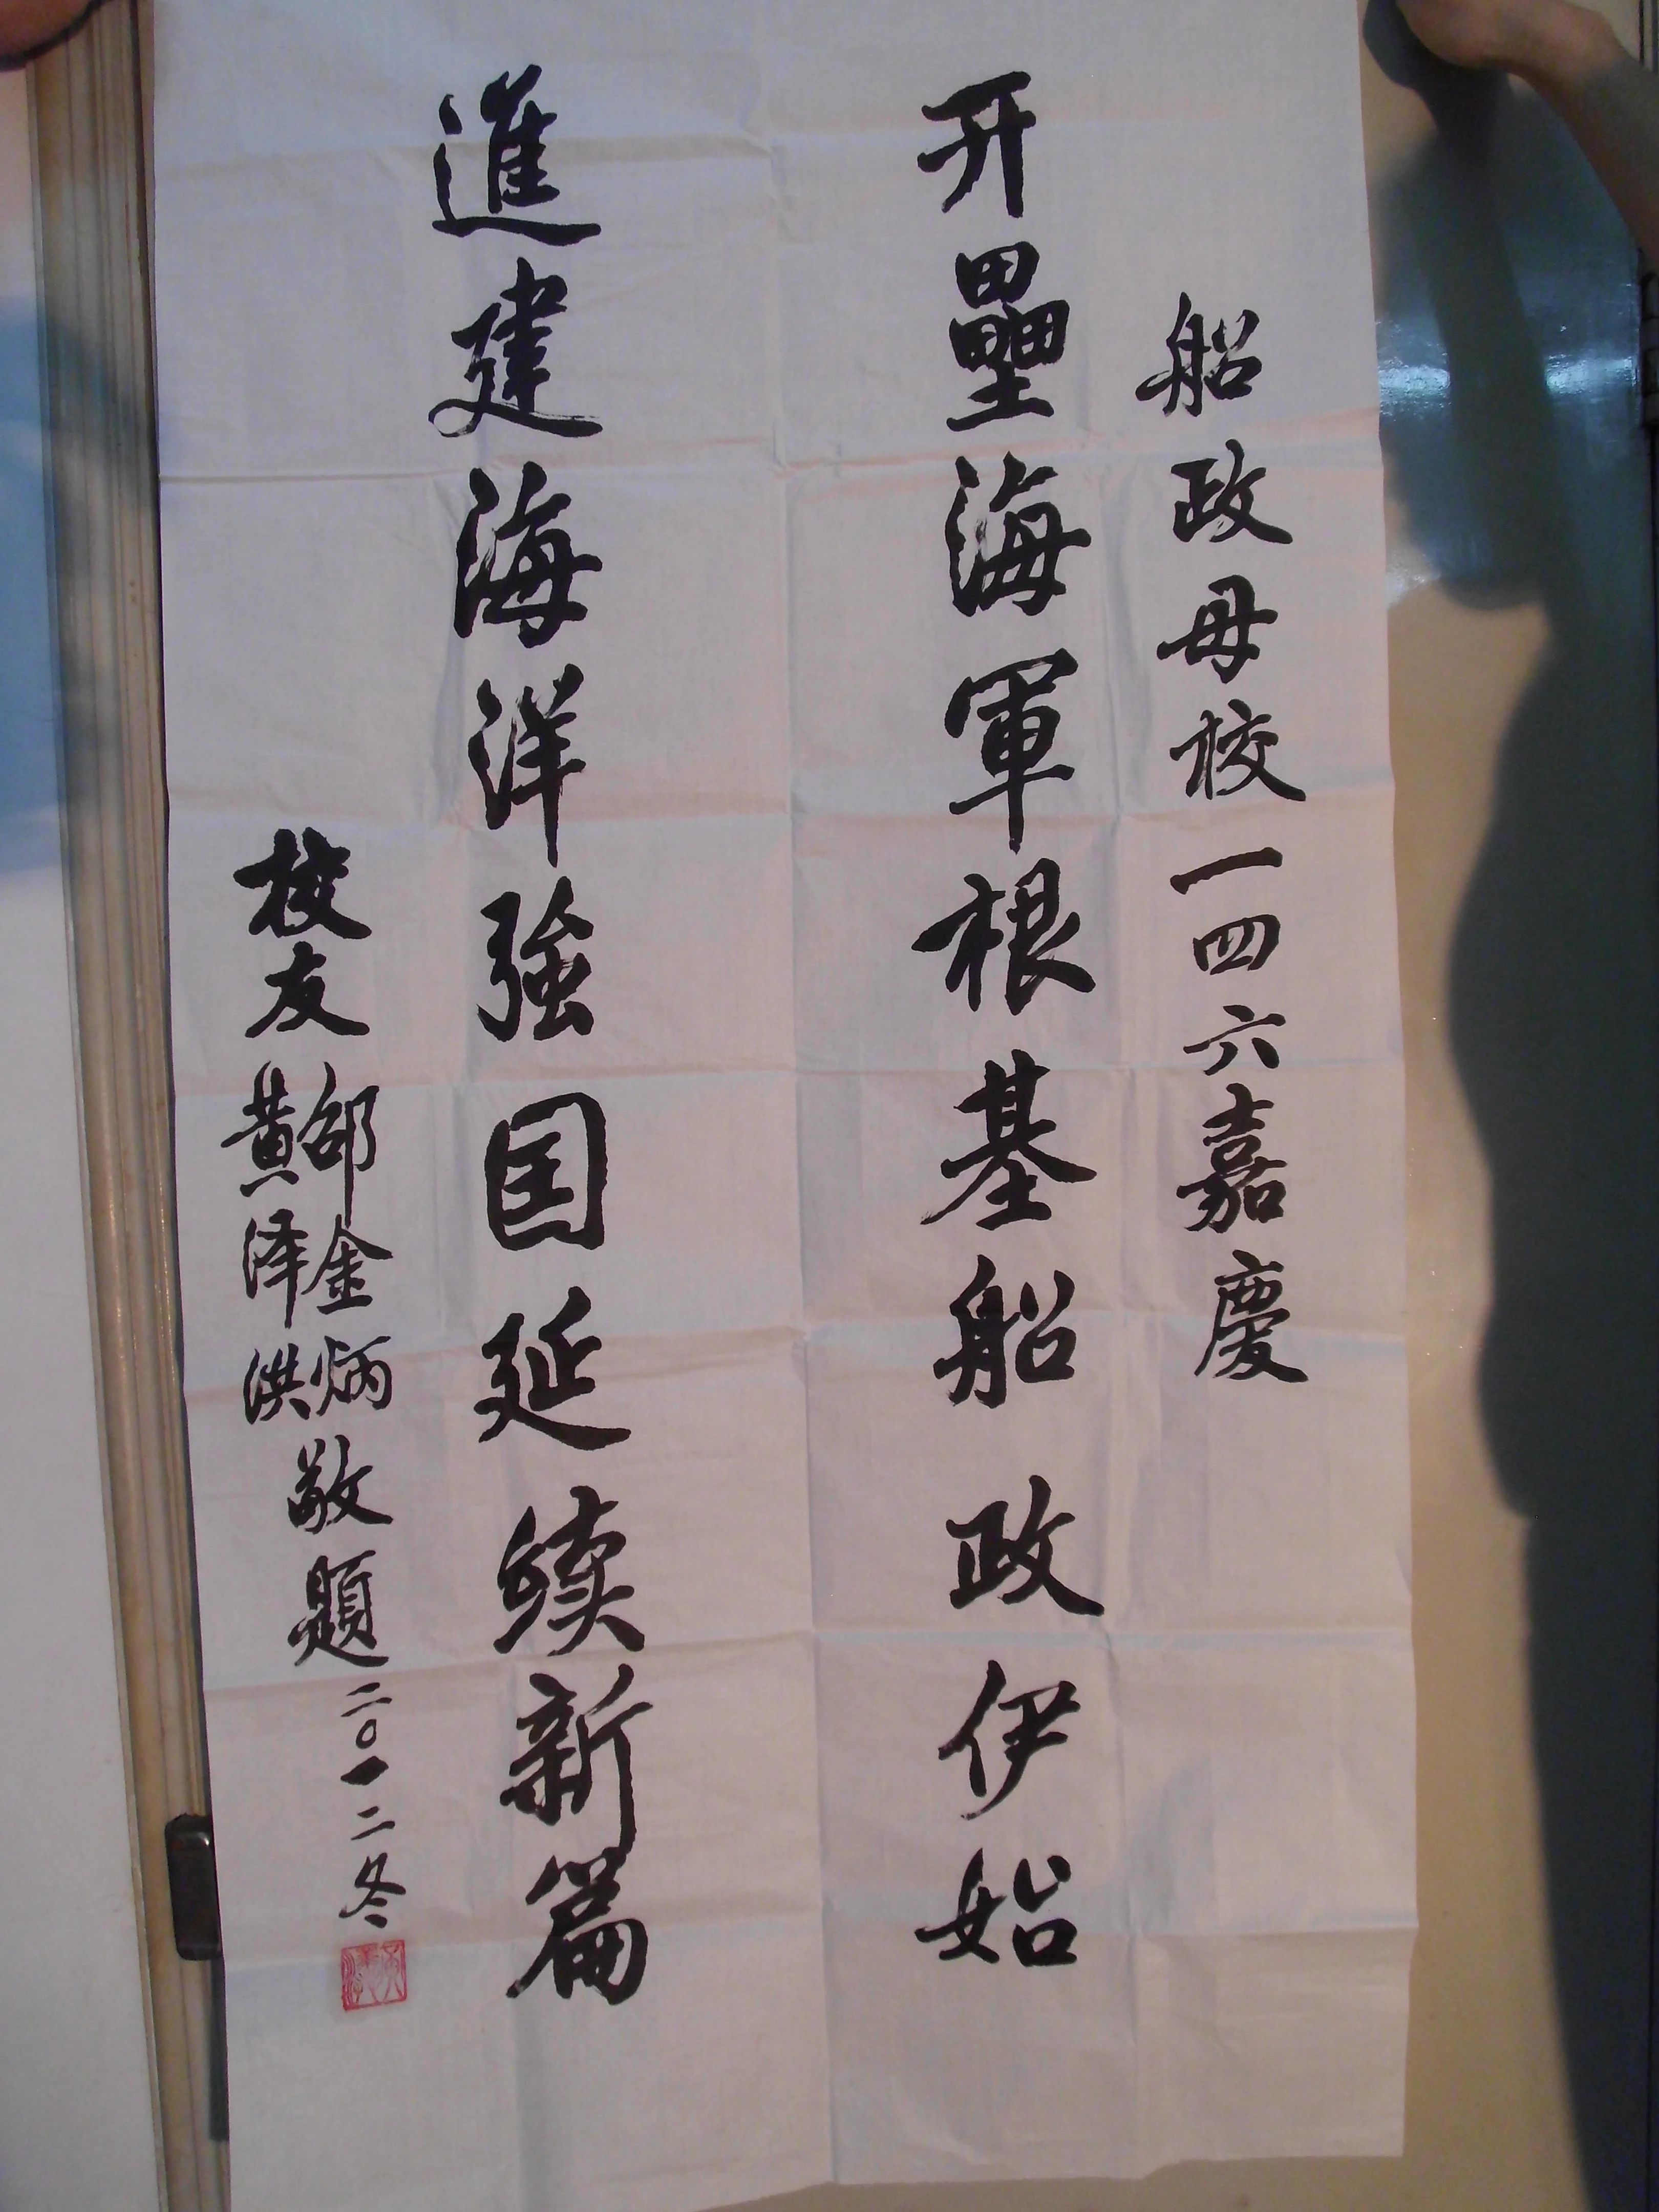 船政母校一四六嘉慶
开壘海軍根基船政伊始
進建海洋強国延续新篇
校友
邵金炳
黄泽洪
敬題二〇一二冬